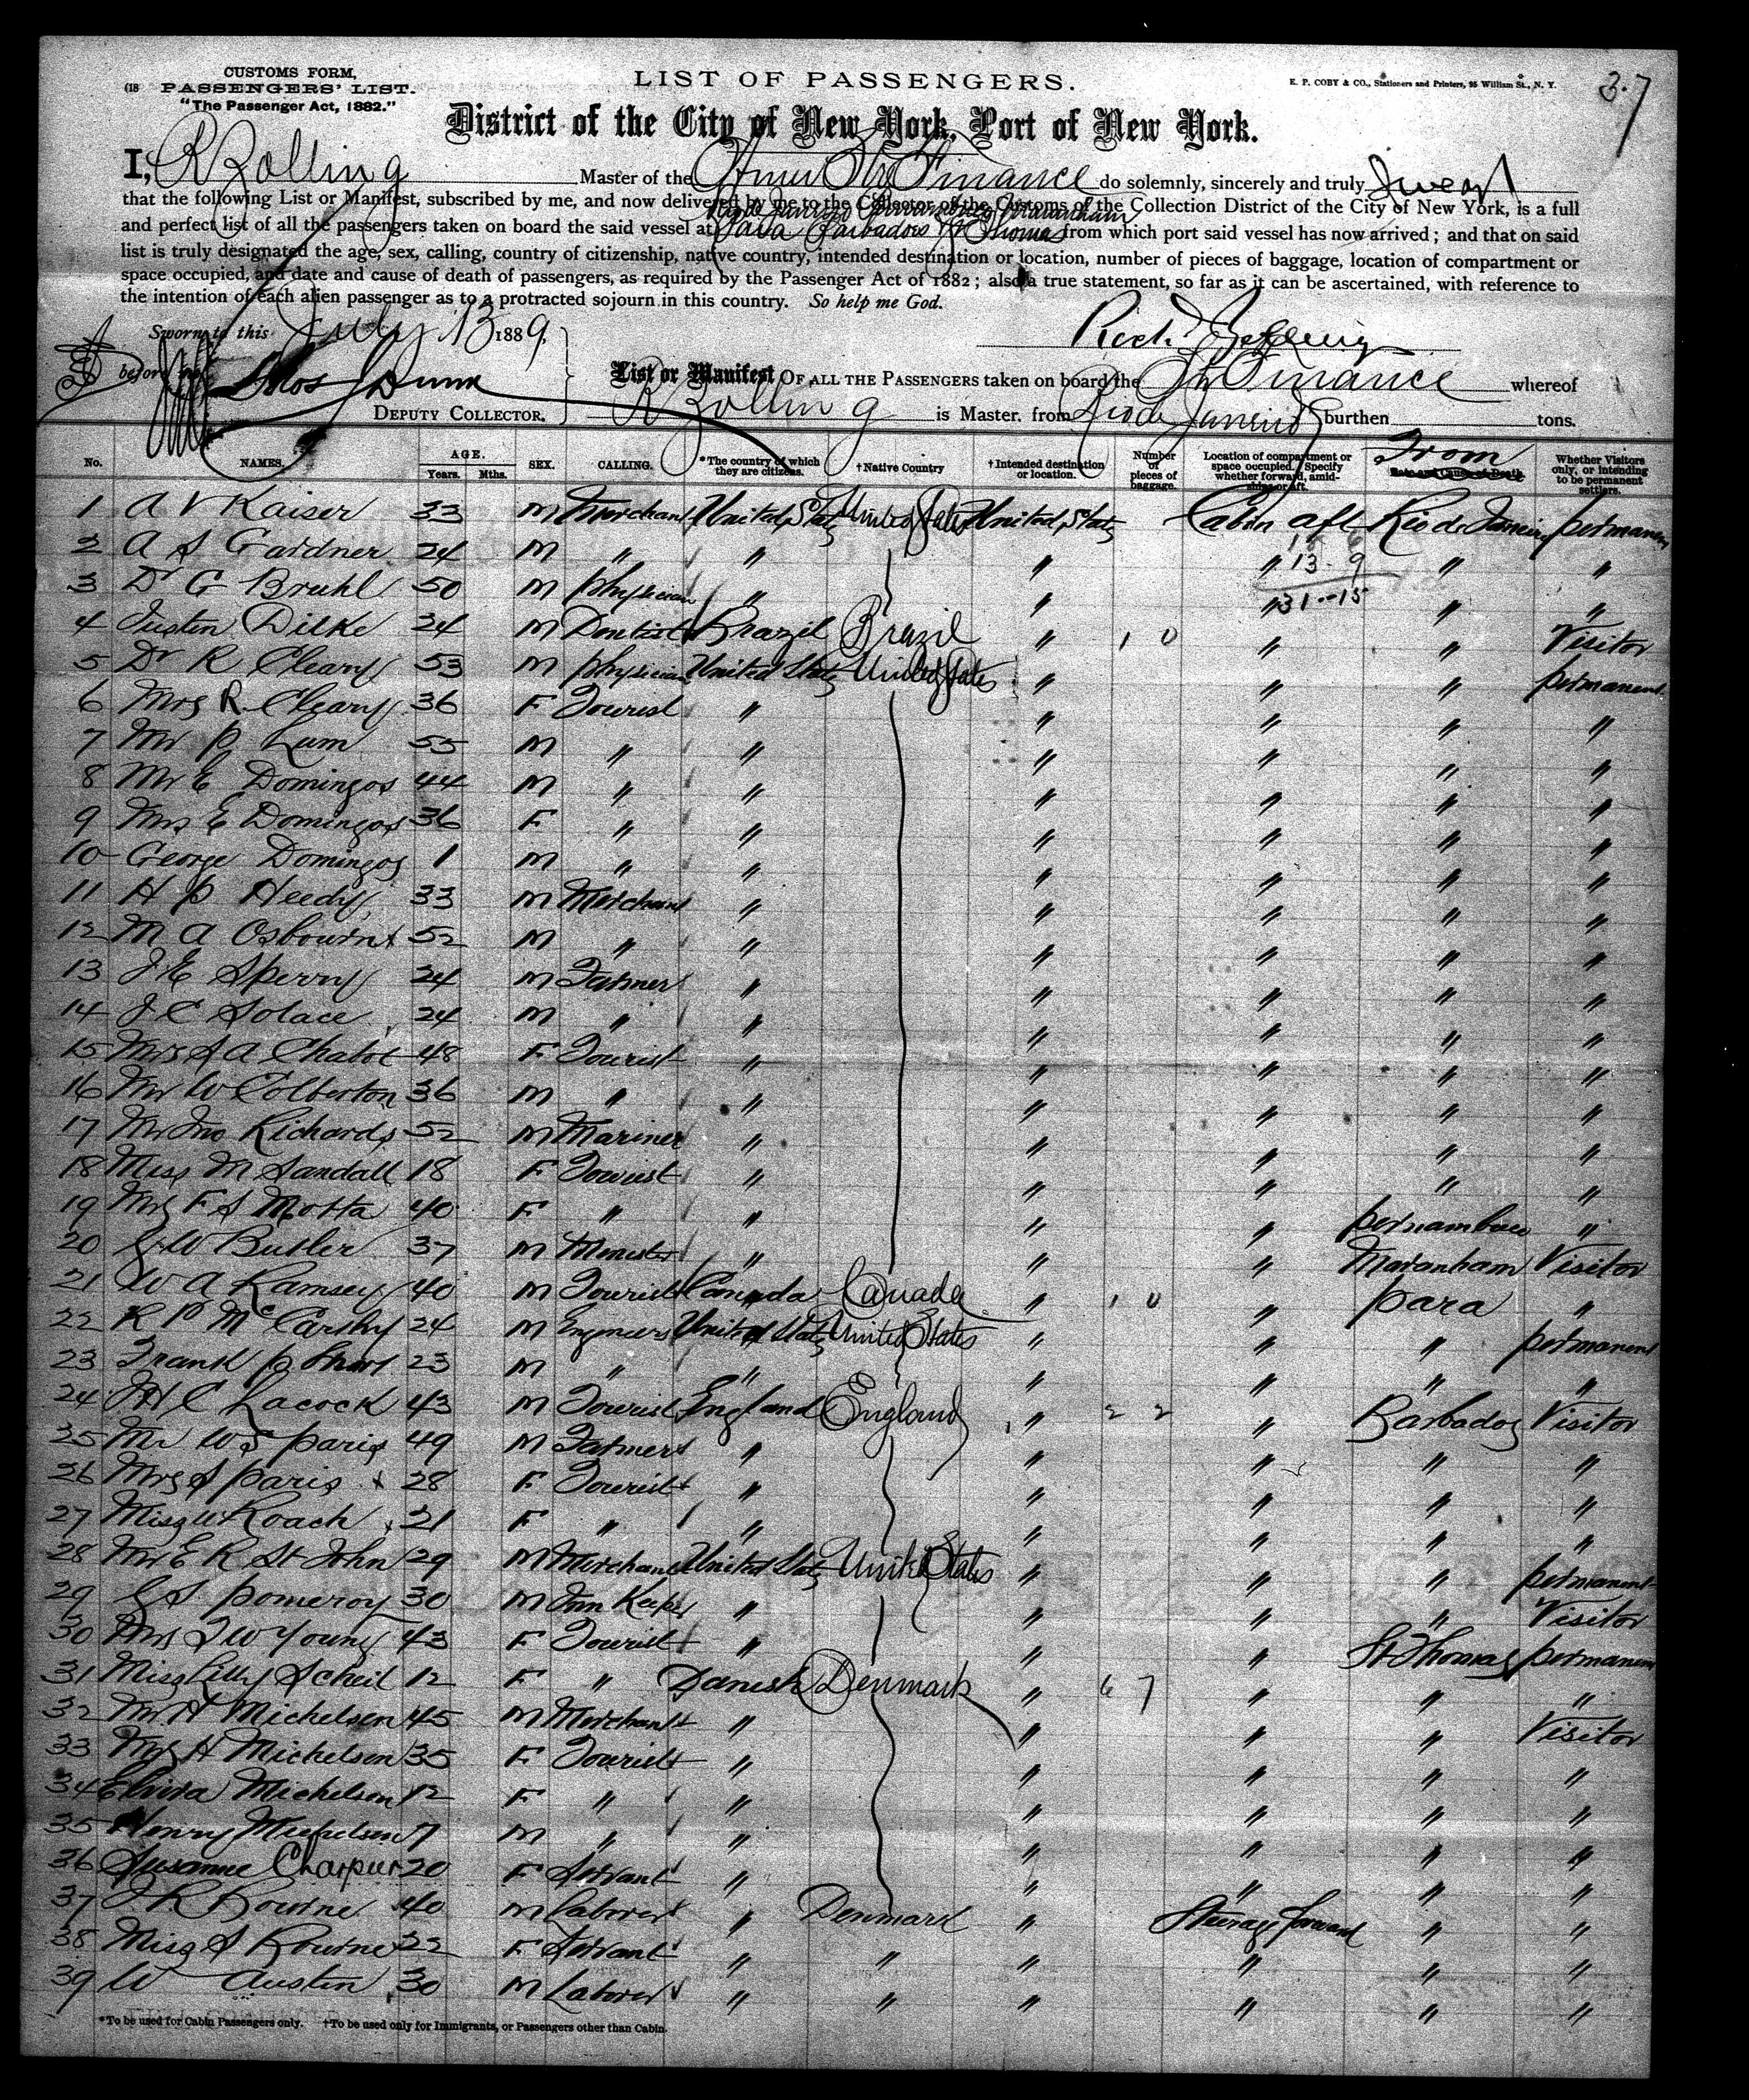 CUSTOMS FORM,
(18 PASSENGERS' LIST.
"The Passenger Act, 1882."
LIST OF PASSENGERS.
E. P. COBY & CO., Stationers and Printers, 95 William St., N. Y.
37
District of the City of New York, Port of New York.
I, R Zolling Master of the Amer Str Finance do solemnly, sincerely and truly swear
that the following List or Manifest, subscribed by me, and now delivered by me to the Collector of the Customs of the Collection District of the City of New York, is a full
Rio de Janeiro Pernambuco Maranham
and perfect list of all the passengers taken on board the said vessel at Para Barbados St Thomas from which port said vessel has now arrived; and that on said
list is truly designated the age, sex, calling, country of citizenship, native country, intended destination or location, number of pieces of baggage, location of compartment or
space occupied, and date and cause of death of passengers, as required by the Passenger Act of 1882; also a true statement, so far as it can be ascertained, with reference to
the intention of each alien passenger as to a protracted sojourn in this country. So help me God.
Sworn to this July 13 1889
before me Thos Dunn
DEPUTY COLLECTOR.
List or Manifest OF ALL THE PASSENGERS taken on board the Str Finance whereof
R Zolling is Master, from Rio de Janeiro burthen tons.
No. NAMES. AGE. Years. Mths. SEX. CALLING. *The country of which they are citizens. †Native Country †Intended destination or location. Number of pieces of baggage. Location of compartment or space occupied. Specify whether forward, amidships or aft. From Date and Cause of Death. Whether Visitors only, or intending to be permanent settlers.
1 A V Kaiser 33 M Merchant United States United States United States Cabin aft Rio de Janeiro permanent
2 A S Gardner 24 M " " " " " "
13 9
3 Dr G Bruhl 50 M physician " " " " "
31 - 15
4 Justin Dilke 24 M Dentist Brazil Brazil " 1 0 " " Visitor
5 Dr R Cleary 53 M physician United States United States " " " permanent
6 Mrs R Cleary 36 F Tourist " " " " "
7 Mr P Lum 55 M " " " " " "
8 Mr E Domingos 44 M " " " " " "
9 Mrs E Domingos 36 F " " " " " "
10 George Domingos 1 M " " " " " "
11 H P Heedy 33 M Merchant " " " " "
12 M A Osbourn 52 M " " " " " "
13 J E Sperry 24 M Farmer " " " " "
14 J C Solace 24 M " " " " " "
15 Mrs S A Chabot 48 F Tourist " " " " "
16 Mr W Colberton 36 M " " " " " "
17 Mr Jno Richards 52 M Mariner " " " " "
18 Miss M Sandall 18 F Tourist " " " " "
19 Mrs F S Motta 40 F " " " " pernambuco "
20 J W Butler 37 M Minister " " " Maranham Visitor
21 W A Ramsey 40 M Tourist Canada Canada " 1 0 " para "
22 R P McCarthy 24 M Engineers United States United States " " " permanent
23 Frank P 23 M " " " " " "
24 H C Lacock 43 M Tourist England England " 2 2 " Barbados Visitor
25 Mr W S paris 49 M Farmer " " " " "
26 Mrs S paris 28 F Tourist " " " " "
27 Miss Roach 21 F " " " " " "
28 Mr E R St John 29 M Merchant United States United States " " " permanent
29 S pomeroy 30 M Inn Keeper " " " " Visitor
30 Mrs J W Young 43 F Tourist " " " St Thomas permanent
31 Miss Lilly Scheil 12 F " Danish Denmark " 6 7 " " "
32 Mr H Michelsen 45 M Merchant " " " " Visitor
33 Mrs H Michelsen 35 F Tourist " " " " "
34 Elvira Michelsen 12 F " " " " " "
35 Henry Michelsen 7 M " " " " " "
36 Susanne Charpur 20 F Servant " " " " "
37 J R Bourne 40 M Laborer " Denmark " Steerage forward " "
38 Miss S Bourne 22 F Servant " " " " " "
39 W Austin 30 M Laborer " " " " " "
*To be used for Cabin Passengers only. †To be used only for Immigrants, or Passengers other than Cabin.